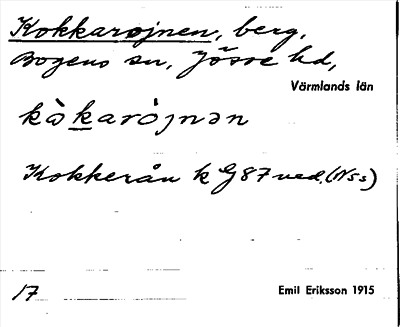 Kokkarøjnen, berg,
Bogens sn, Jösse hd,
Värmlands län
kὰkarójnən
Kokkerån k G 87 ned. (N53)
17 Emil Eriksson 1915